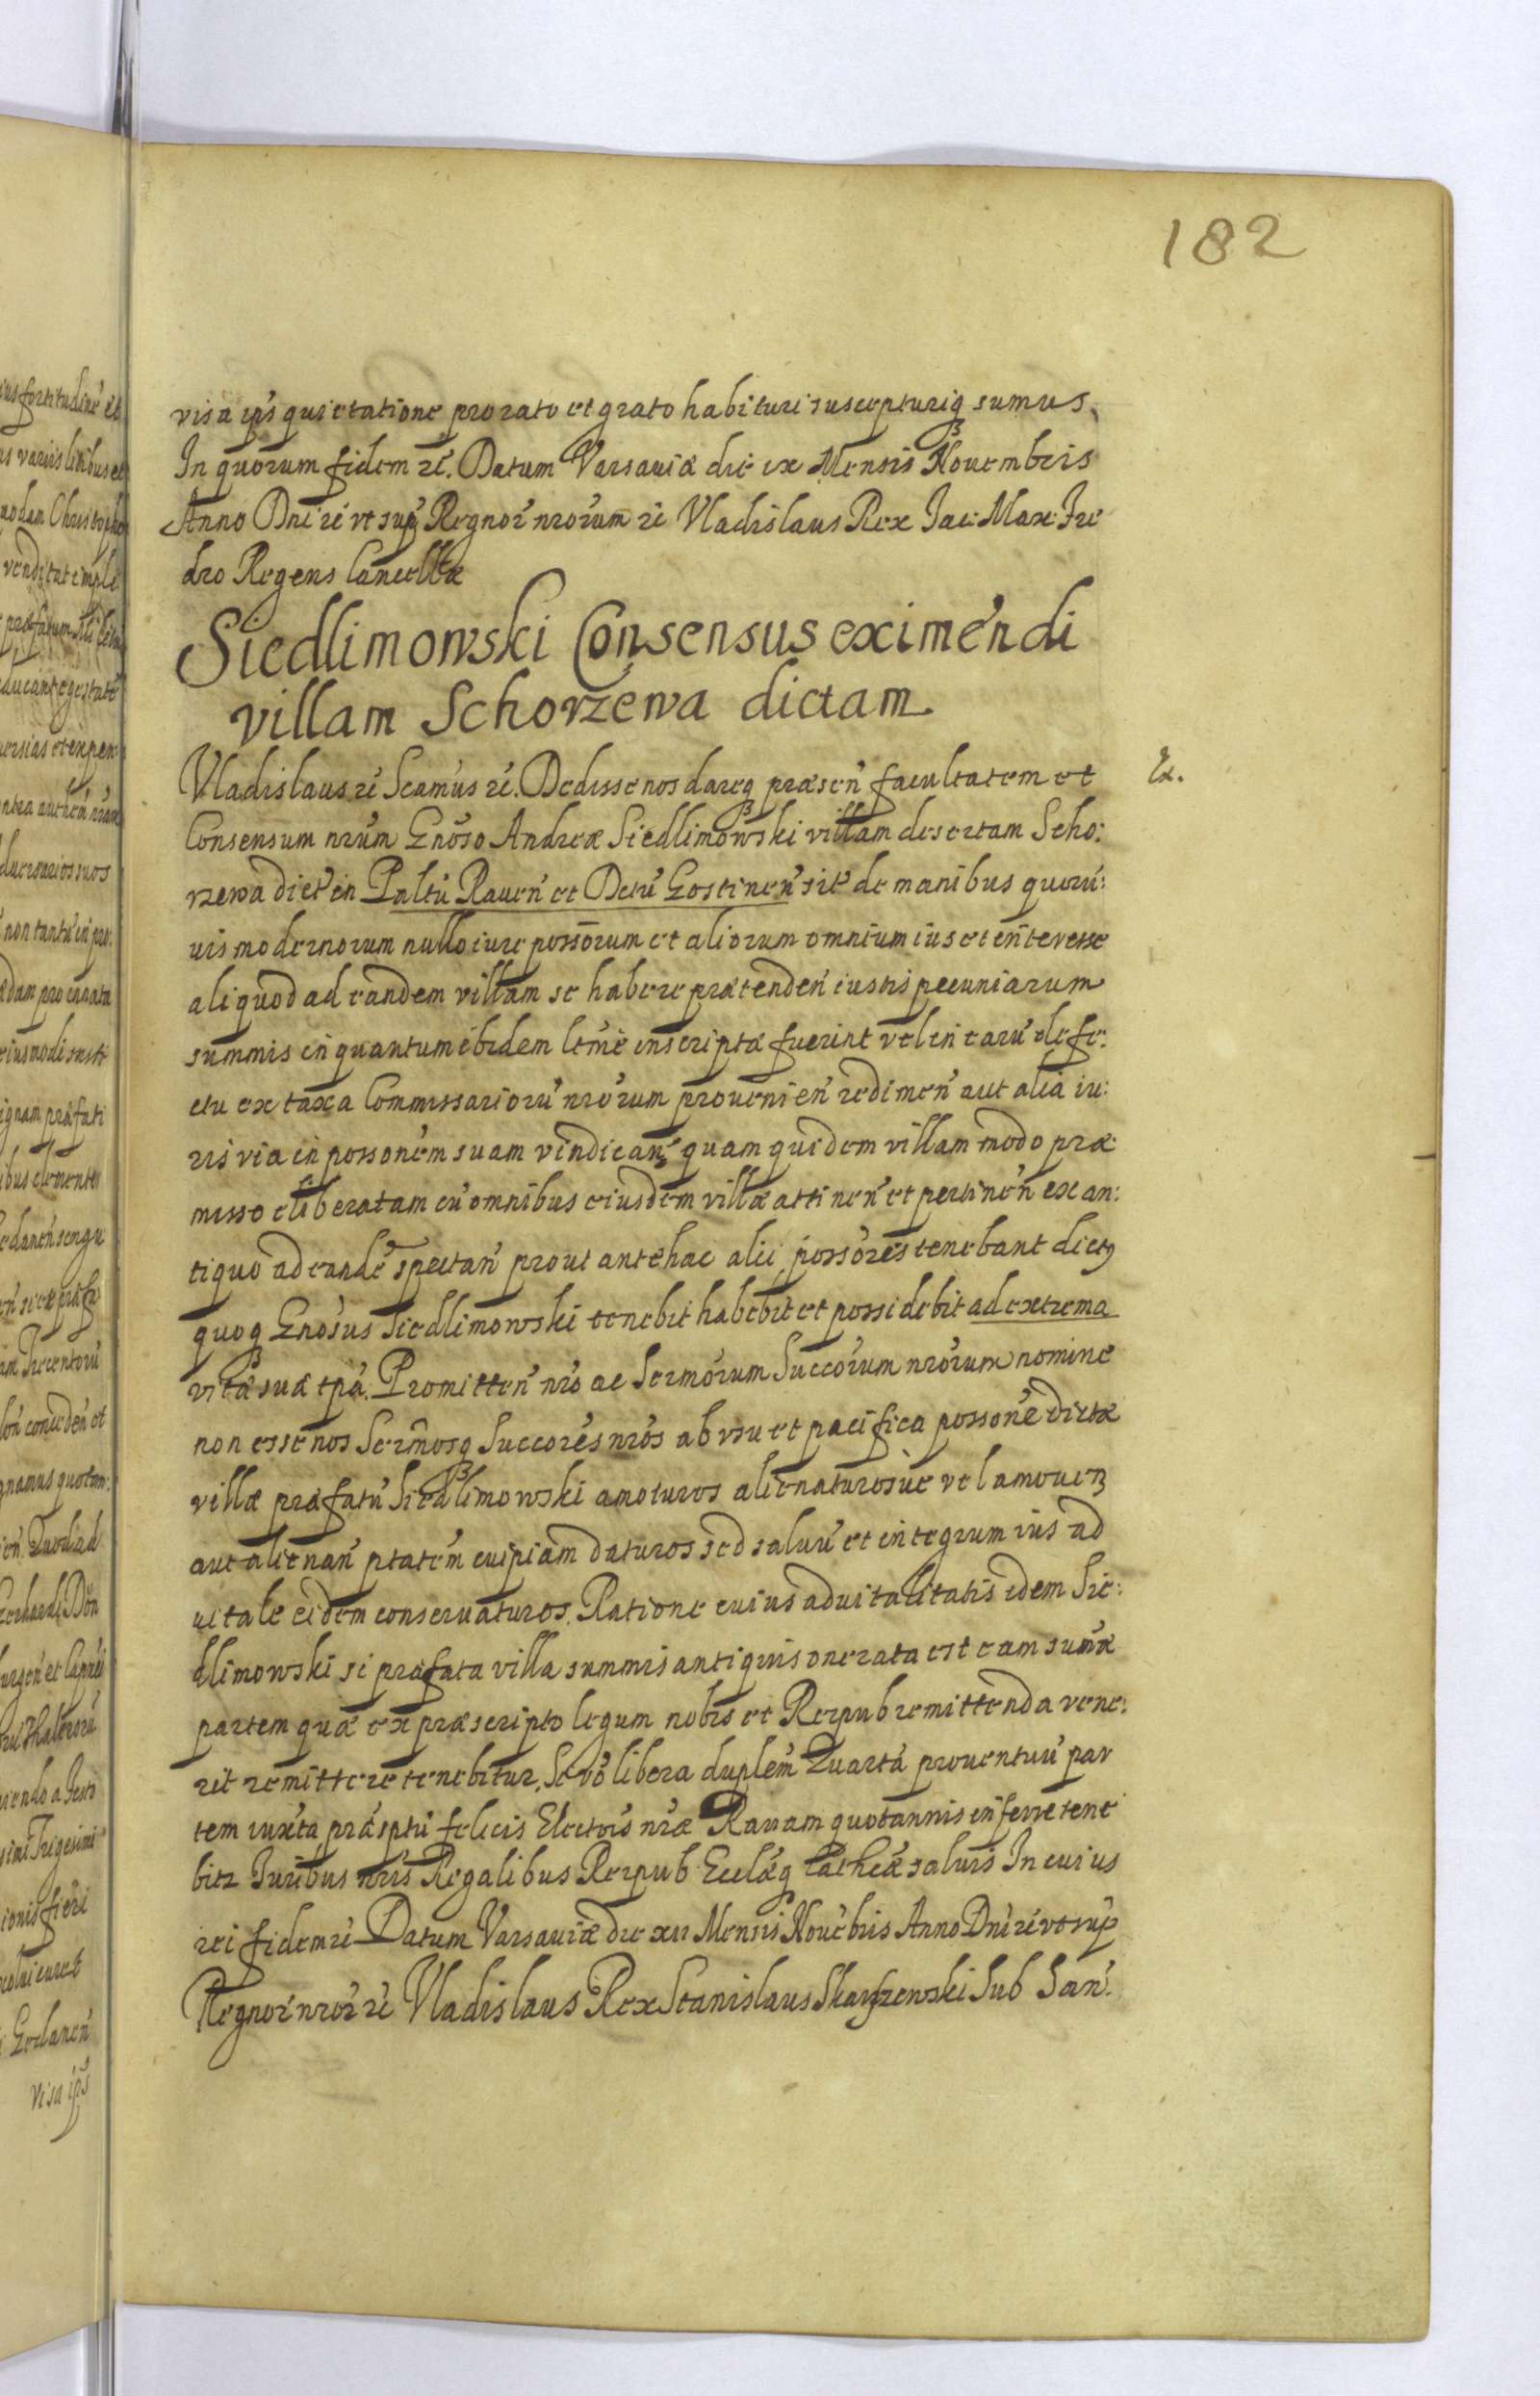 182
visa ips quietatione pro rato et grato habituri suscepturiq sumus.
In quorum fidem rẽ. Datum Varsaviæ die ix Mensis Novembris
Anno Dni rẽ ut sup Regnoꝝ nrorum rẽ Vladislaus Rex Jac: Max: Fre
dro Regens Cancellæ
Siedlimowski Consensus eximẽndi
villam Schorzewa dictam
Vladislaus rẽ Scamus rẽ. Dedisse nos dareq præsen facultatem et
Ex.
Consensum nrum Gnoso Andreæ Siedlimowski villam desertam Scho:
rzewa dict in Paltu Raven et Dctu Gostinen sit de manibus quoru:
vis modernorum nullo iure possorum et aliorum omnium ius et interesse
aliquod ad eandem villam se habere prætenden iustis pecuniarum
summis in quantum ibidem ltme inscriptæ fuerint vel in earu defe:
ctu ex taxa Commissarioru nrorum provenien redimen aut alia iu:
ris via in possonem suam vindican quam quidem villam modo præ
misso eliberatam cu omnibus eiusdem villæ attinen et pertinen ex an:
tiquo ad eande spectan prout antehac alii possores tenebant dictꝰ
quoq Gnosus Siedlimowski tenebit habebit et possidebit ad extrema
vitæ suæ tpa. Promitten nro ac Sermorum Succorum nrorum nomine
non esse nos Sermosq Succores nros ab usu et pacifica possone dictæ
villæ præfatu Siedlimowski amoturos alienaturosve vel amovenꝫ
aut alienan ptatem cuipiam daturos sed salvu et integrum ius ad
vitale eidem conservaturos. Ratione cuius advitalitatis idem Sie:
dlimowski si præfata villa summis antiquis onerata est eam sumæ
partem quæ ex præscripto legum nobis et Reipub remittenda vene:
rit remittere tenebitur, Se vo libera duplem Quarta proventuu par
tem iuxta præsptu felicis Electois nræ Ravam quotannis inferre tene
bitr Iuribus nris Regalibus Reipub Ecclæq Cathcæ salvis In cuius
rei fidem rẽ Datum Varsaviæ die xii Mensis Novebris Anno Dni rẽ ut sup
Regnoꝝ nroꝝ rẽ Vladislaus Rex Stanislaus Skarszewski Sub San.